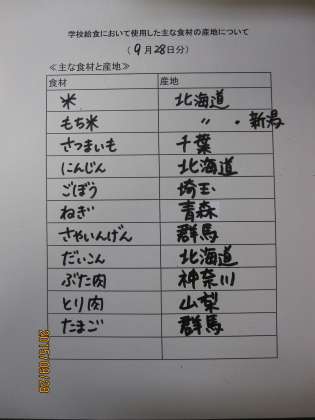 学校給食において使用した主な食材の産地について
（ 9 月 28 日分）
≪主な食材と産地≫
食材 産地
米 北海道
もち米 〃 ・新潟
さつまいも 千葉
にんじん 北海道
ごぼう 埼玉
ねぎ 青森
さやいんげん 群馬
だいこん 北海道
ぶた肉 神奈川
とり肉 山梨
たまご 群馬
2015/09/29